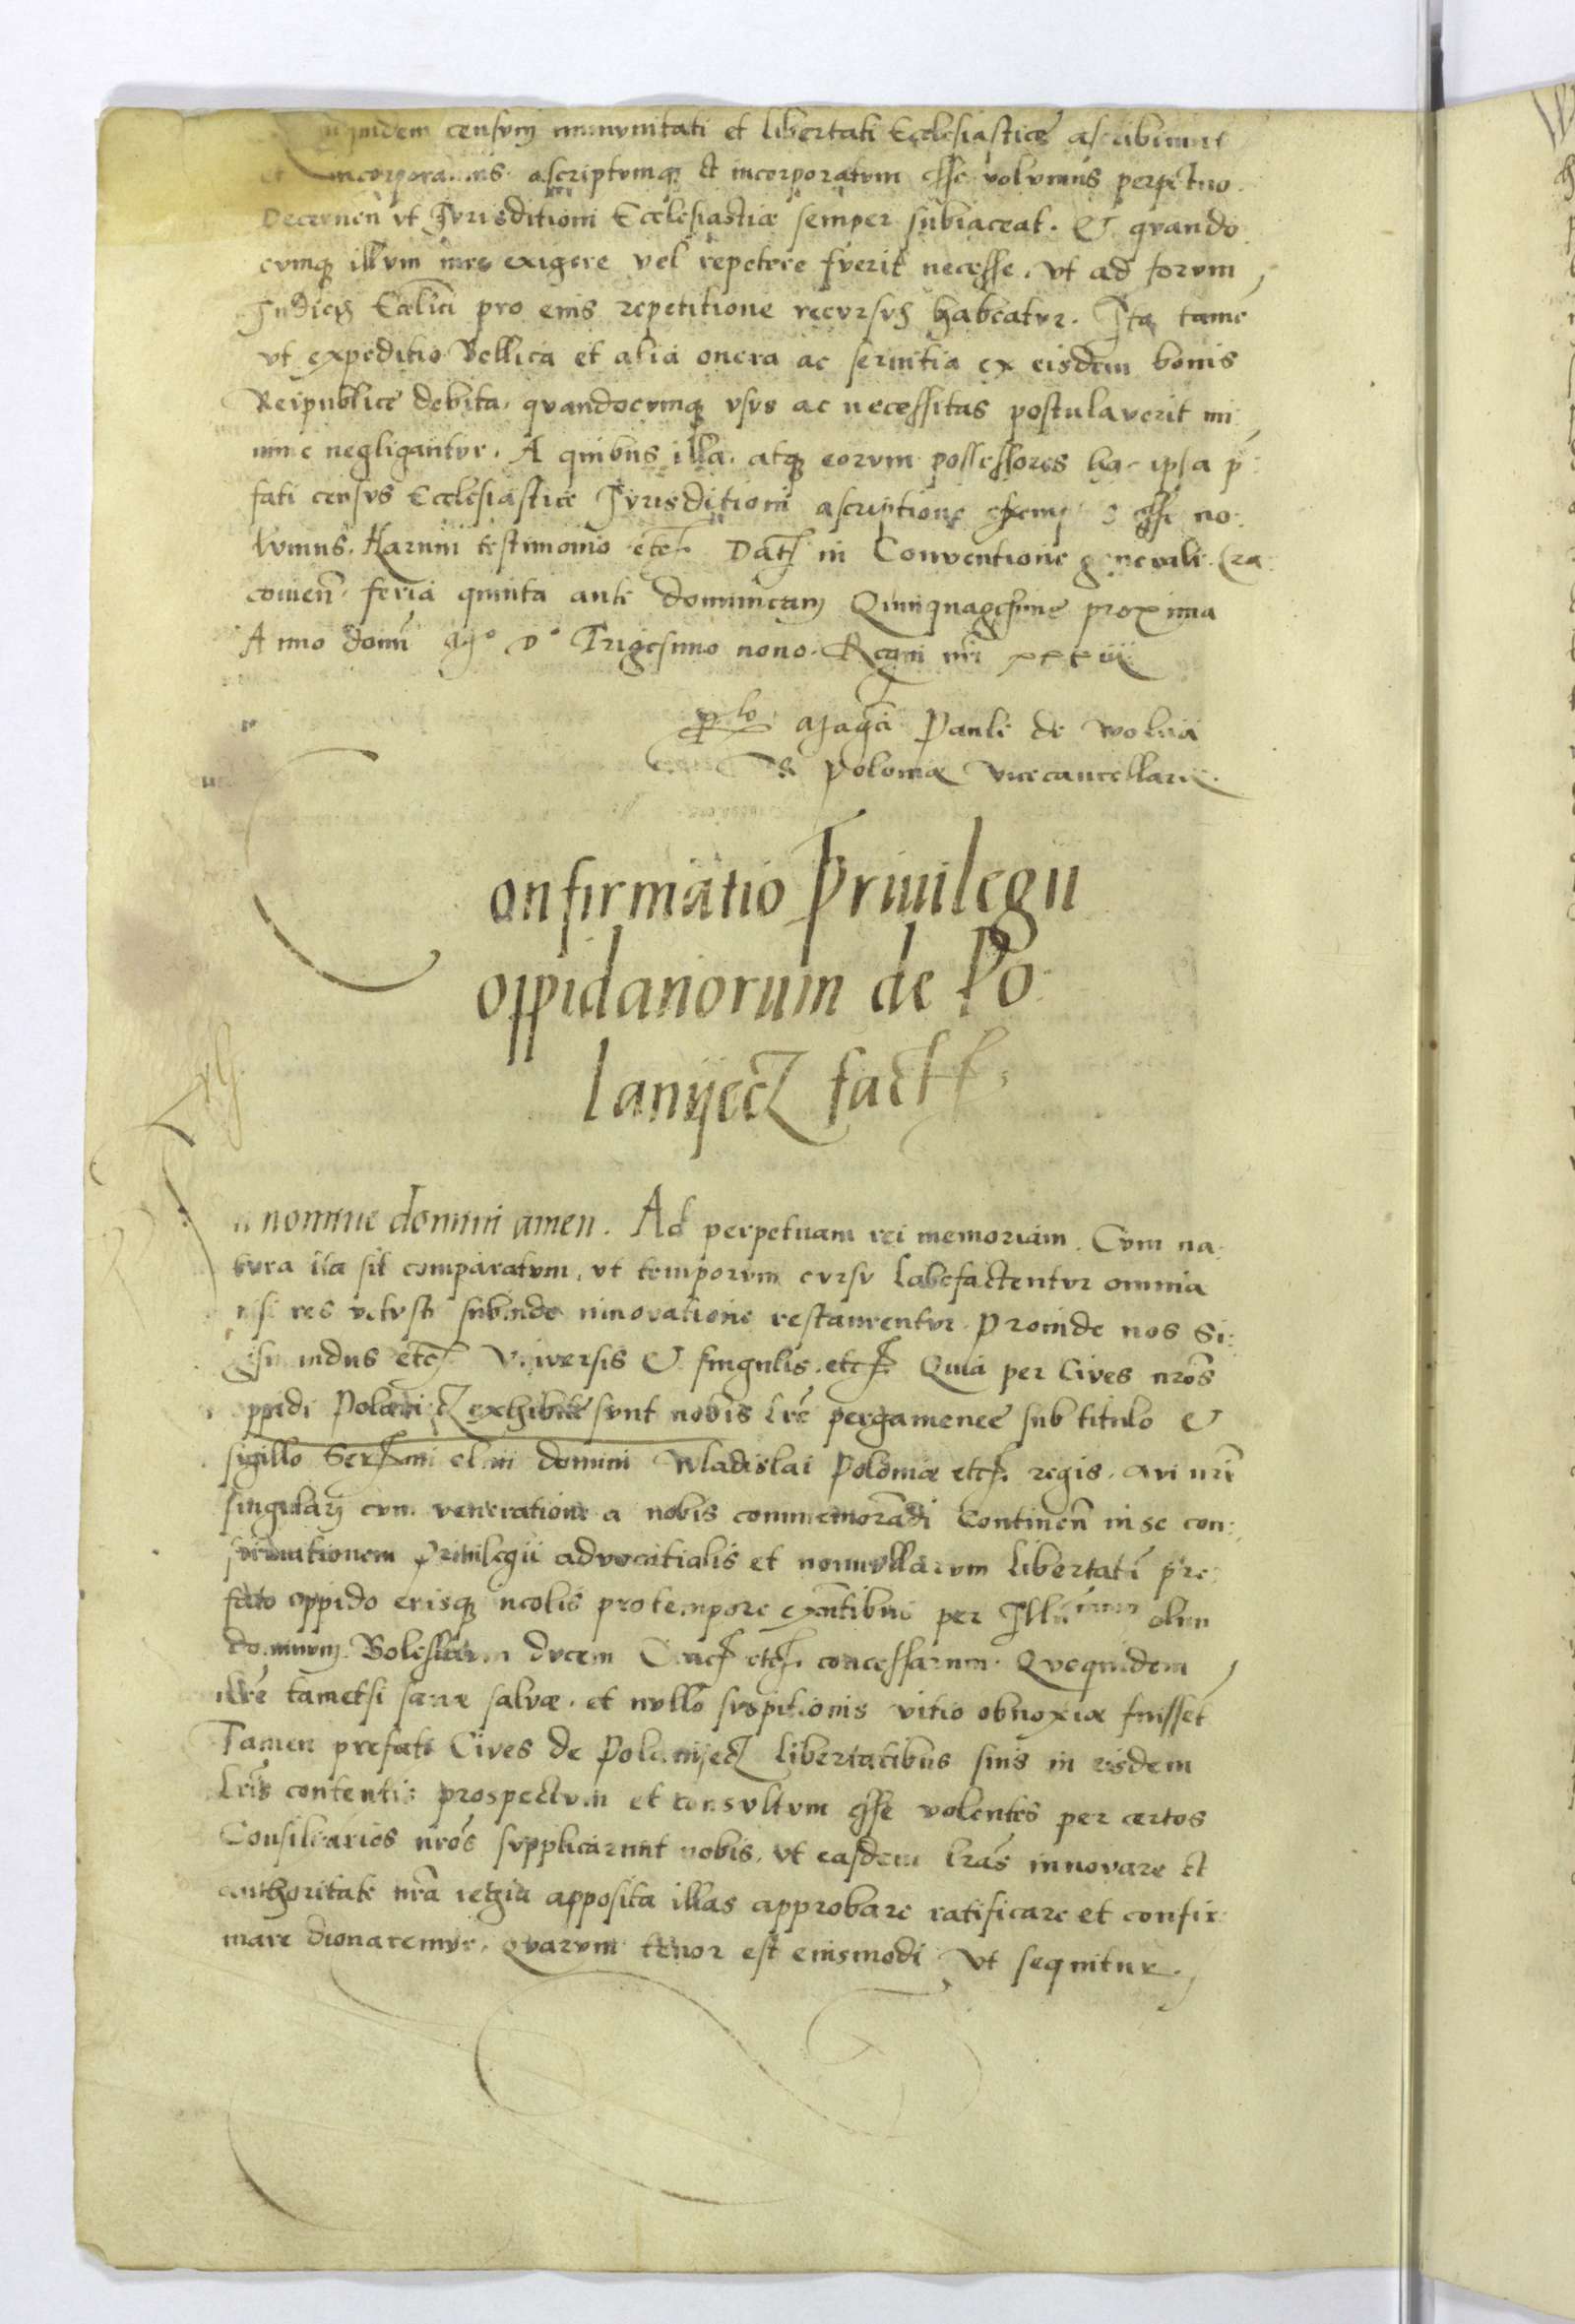 quidem censum immunitati et libertati Ecclesiasticę ascribimus
et incorporamus. ascriptumq; et incorporatum esse volumus perpetuo.
Decernen̄ vt Jurisditioni Ecclesiasticæ semper subiaceat. Et quando
cumq; illum iure exigere vel repetere fuerit necesse. vt ad forum
Judicis Eccl̄ici pro eius repetitione recursus habeatur. Ita tame
vt expeditio Bellica et alia onera ac seruitia ex eisdem bonis
Reipublicę debita. quandocumq; vsus ac necessitas postulauerit mi
nime negligantur. A quibus illa. atq; eorum possessores hac ipsa p̄
fati census Ecclesiasticę Jurisditioni ascriptione esse no
lumus. Harum testimonio etc. Dat in Conventione generali Cra
couien̄. feria quinta ante dominicam Quinquagesimę proxima
Anno domi Mo Do Trigesimo nono. Regni nr̄i
Mag̃ci Pauli de wolia
R. Poloniæ Vicecancellarij.
Confirmatio Priuilegii
oppidanorum de Po
lanijecz fact
In nomine domini amen. Ad perpetuam rei memoriam. Cum na
tura ita sit comparatum, vt temporum cursu labefactentur omnia
nisi res vetustę subinde innouatione restaurentur. Proinde nos Si
gismundus etc. Vniversis & singulis. etc. Quia per Cives nr̄os
oppidi Polaniecz exhibitę sunt nobis lr̄e pergamenee sub titulo &
sigillo Sermi olim domini Wladislai Poloniæ etc. regis. Aui nr̄i
singulari cum veneratione a nobis commemorādi Continen̄ in se con
firmationem Priuilegii aduocatialis et nonnullarum libertatū pre
fato oppido eiusq; incolis pro tempore exn̄tibus per Illustrissimum olim
dominum Boleslaum ducem Crac etc. concessarum. Quequidem
lr̄e tametsi sanæ saluæ. et nullo suspitionis vitio obnoxiæ fuisset
Tamen prefati Cives de Polanijecz libertatibus suis in eisdem
lr̄is contentis prospectum et consultum esse volentes per certos
Consiliarios nr̄os supplicarunt nobis. vt easdem lr̄as innouare et
authoritate nr̄a regia apposita illas approbare ratificare et confir
mare dignaremur. Quarum tenor est eiusmodi Vt sequitur.